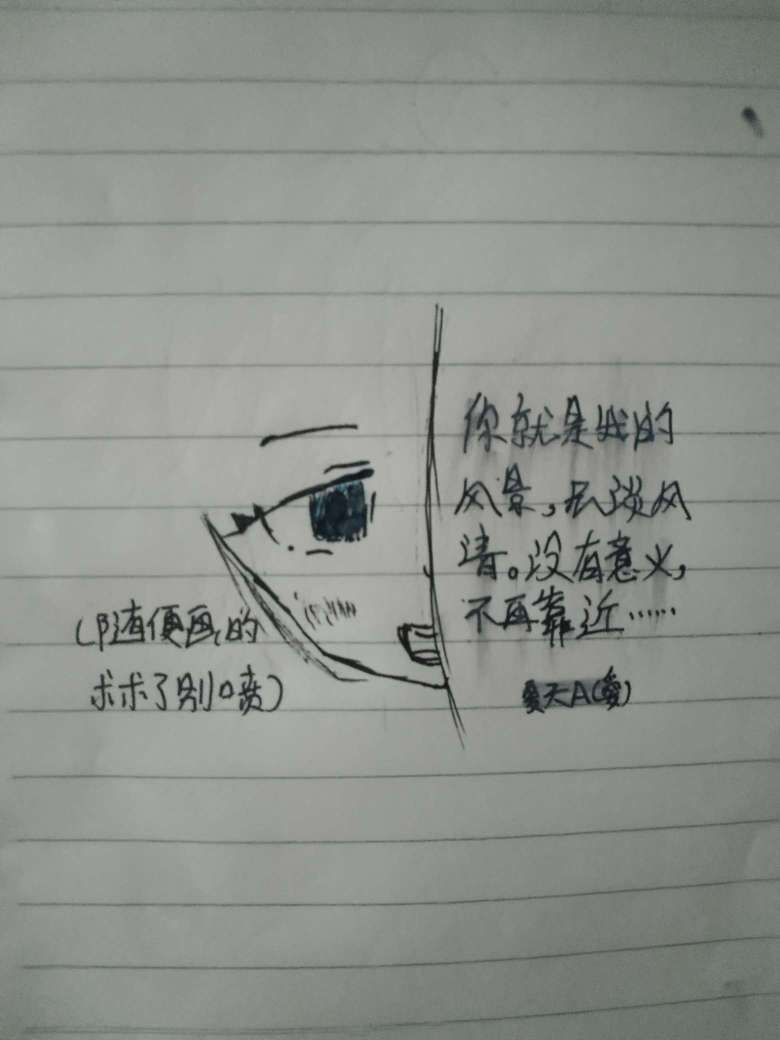 你就是我的
风景，云淡风
清。没有意义，
不再靠近……
夏天A(
(随便画的
求求了别喷)